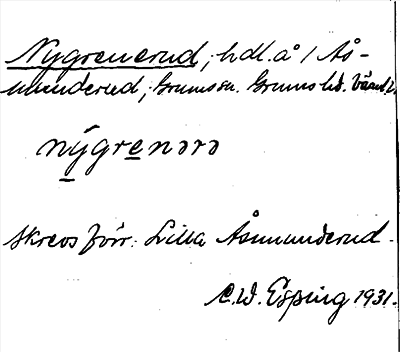 Nygrenerud, hdl. å 1 Ås-
munderud, Grums sn. Grums hd. Värml.
nýgrenərə
skrevs förr: Lilla Åsmunderud.
C.W. Esping 1931.